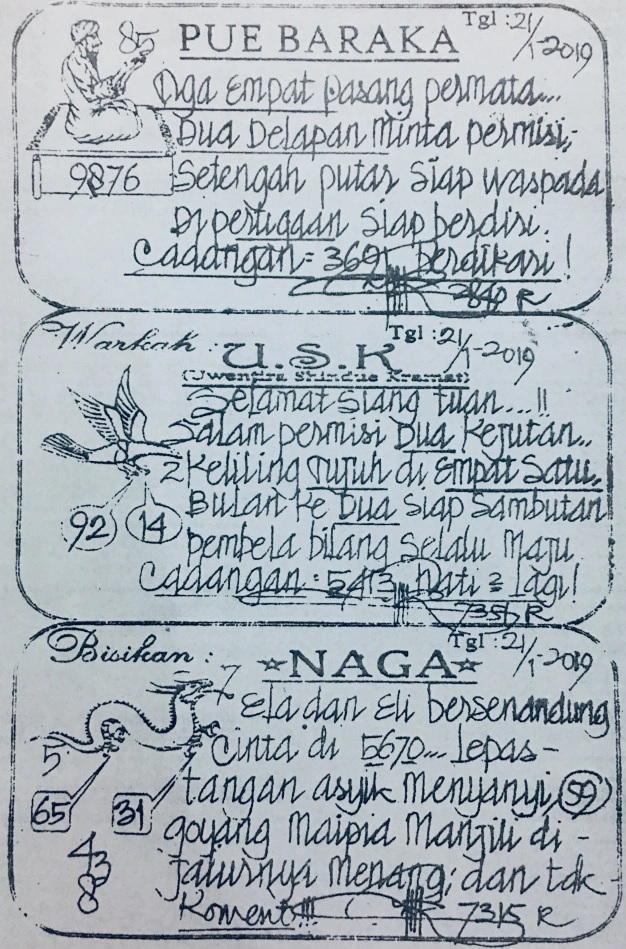 85 PUE BARAKA Tgl : 21/1-2019
Tiga Empat pasang permata...
Dua Delapan Minta permisi;
9876 Setengah putar siap waspada
Di pertigaan siap berdiri.
Cadangan = 3691 Berdikari !
2840 R
Warkah : U.S.K Tgl : 21/1-2019
Selamat siang tuan....!!
Salam permisi Dua Kejutan..
2 Keliling Tujuh di Empat Satu.
Bulan Ke Dua siap sambutan
92 14
pembela bilang selalu Maju
Cadangan : 5413 Hati = Lagi!
7351 R
Bisikan : NAGA Tgl : 21/1-2019
7 Ela dan Eli bersenandung
5 Cinta di 5670... Lepas-
65 31 tangan asyik Menyanyi, 59
goyang Maipia Manjili di-
438 jalurnya Menang; dan tak-
Koment!!!
7315 R